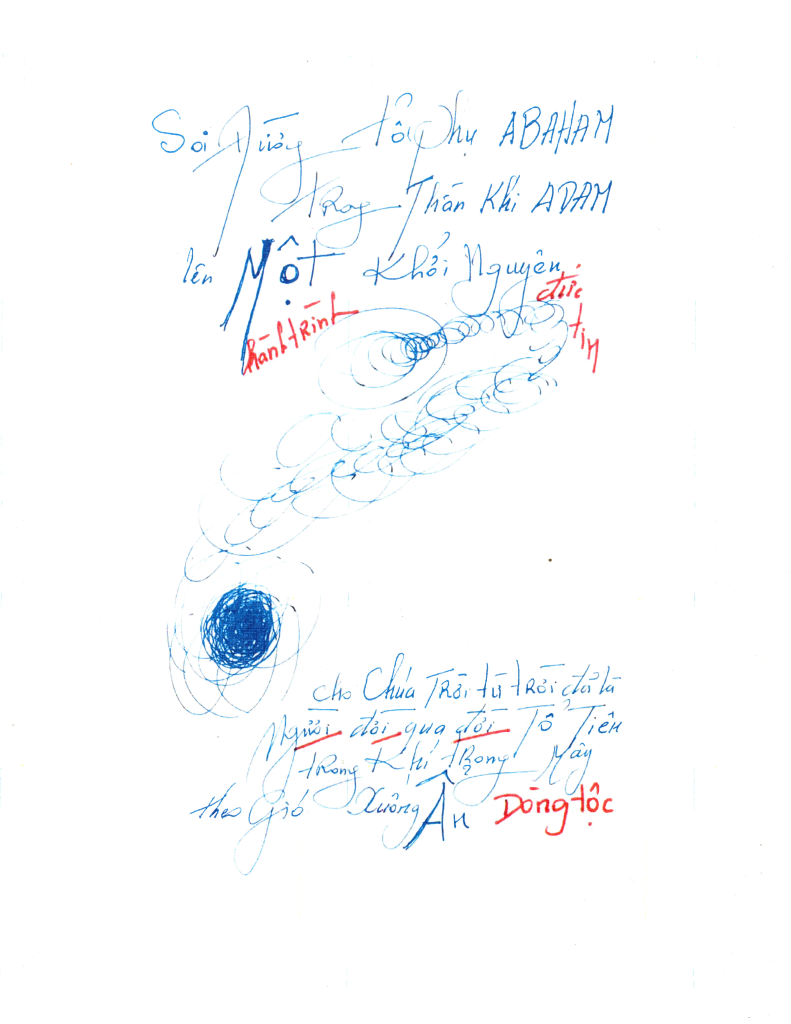 Soi Đường tổ phụ ABAHAM
trong Thần Khí ADAM
lên MỘT Khởi Nguyên
đức
tin
hành trình
cho Chúa Trời từ trời
Người đời qua đời Tổ Tiên
trong Khí trong Mây
theo Gió Xuống Ân Dòng tộc